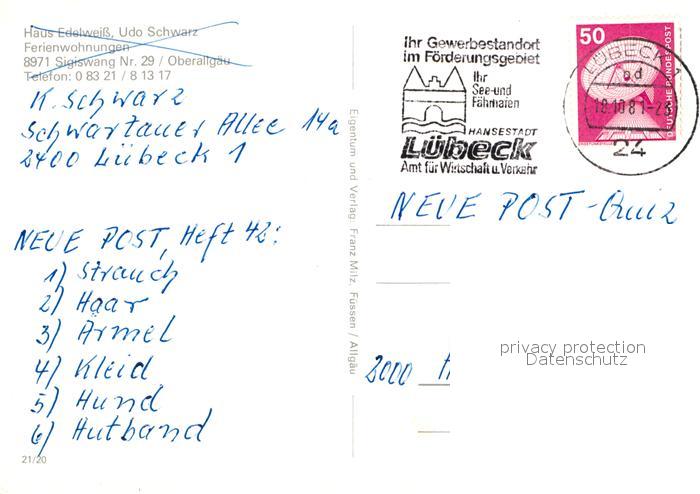 Haus Edelweiß, Udo Schwarz
Ferienwohnungen
8971 Sigiswang Nr. 29 / Oberallgäu
Telefon: 0 83 21 / 8 13 17
K. Schwarz
Schwartauer Allee 14a
2400 Lübeck 1
NEUE POST, Heft 42:
1) Strauch
2) Haar
3) Ärmel
4) Kleid
5) Hund
6) Hutband
21/20
Eigentum und Verlag: Franz Milz, Füssen / Allgäu
Ihr Gewerbestandort
im Förderungsgebiet
Ihr
See-und
Fährhafen
HANSESTADT
Lübeck
Amt für Wirtschaft u. Verkehr
50
DEUTSCHE BUNDESPOST
LÜBECK 1
18.10.81
24
NEUE POST-Quiz
2000 H
privacy protection
Datenschutz